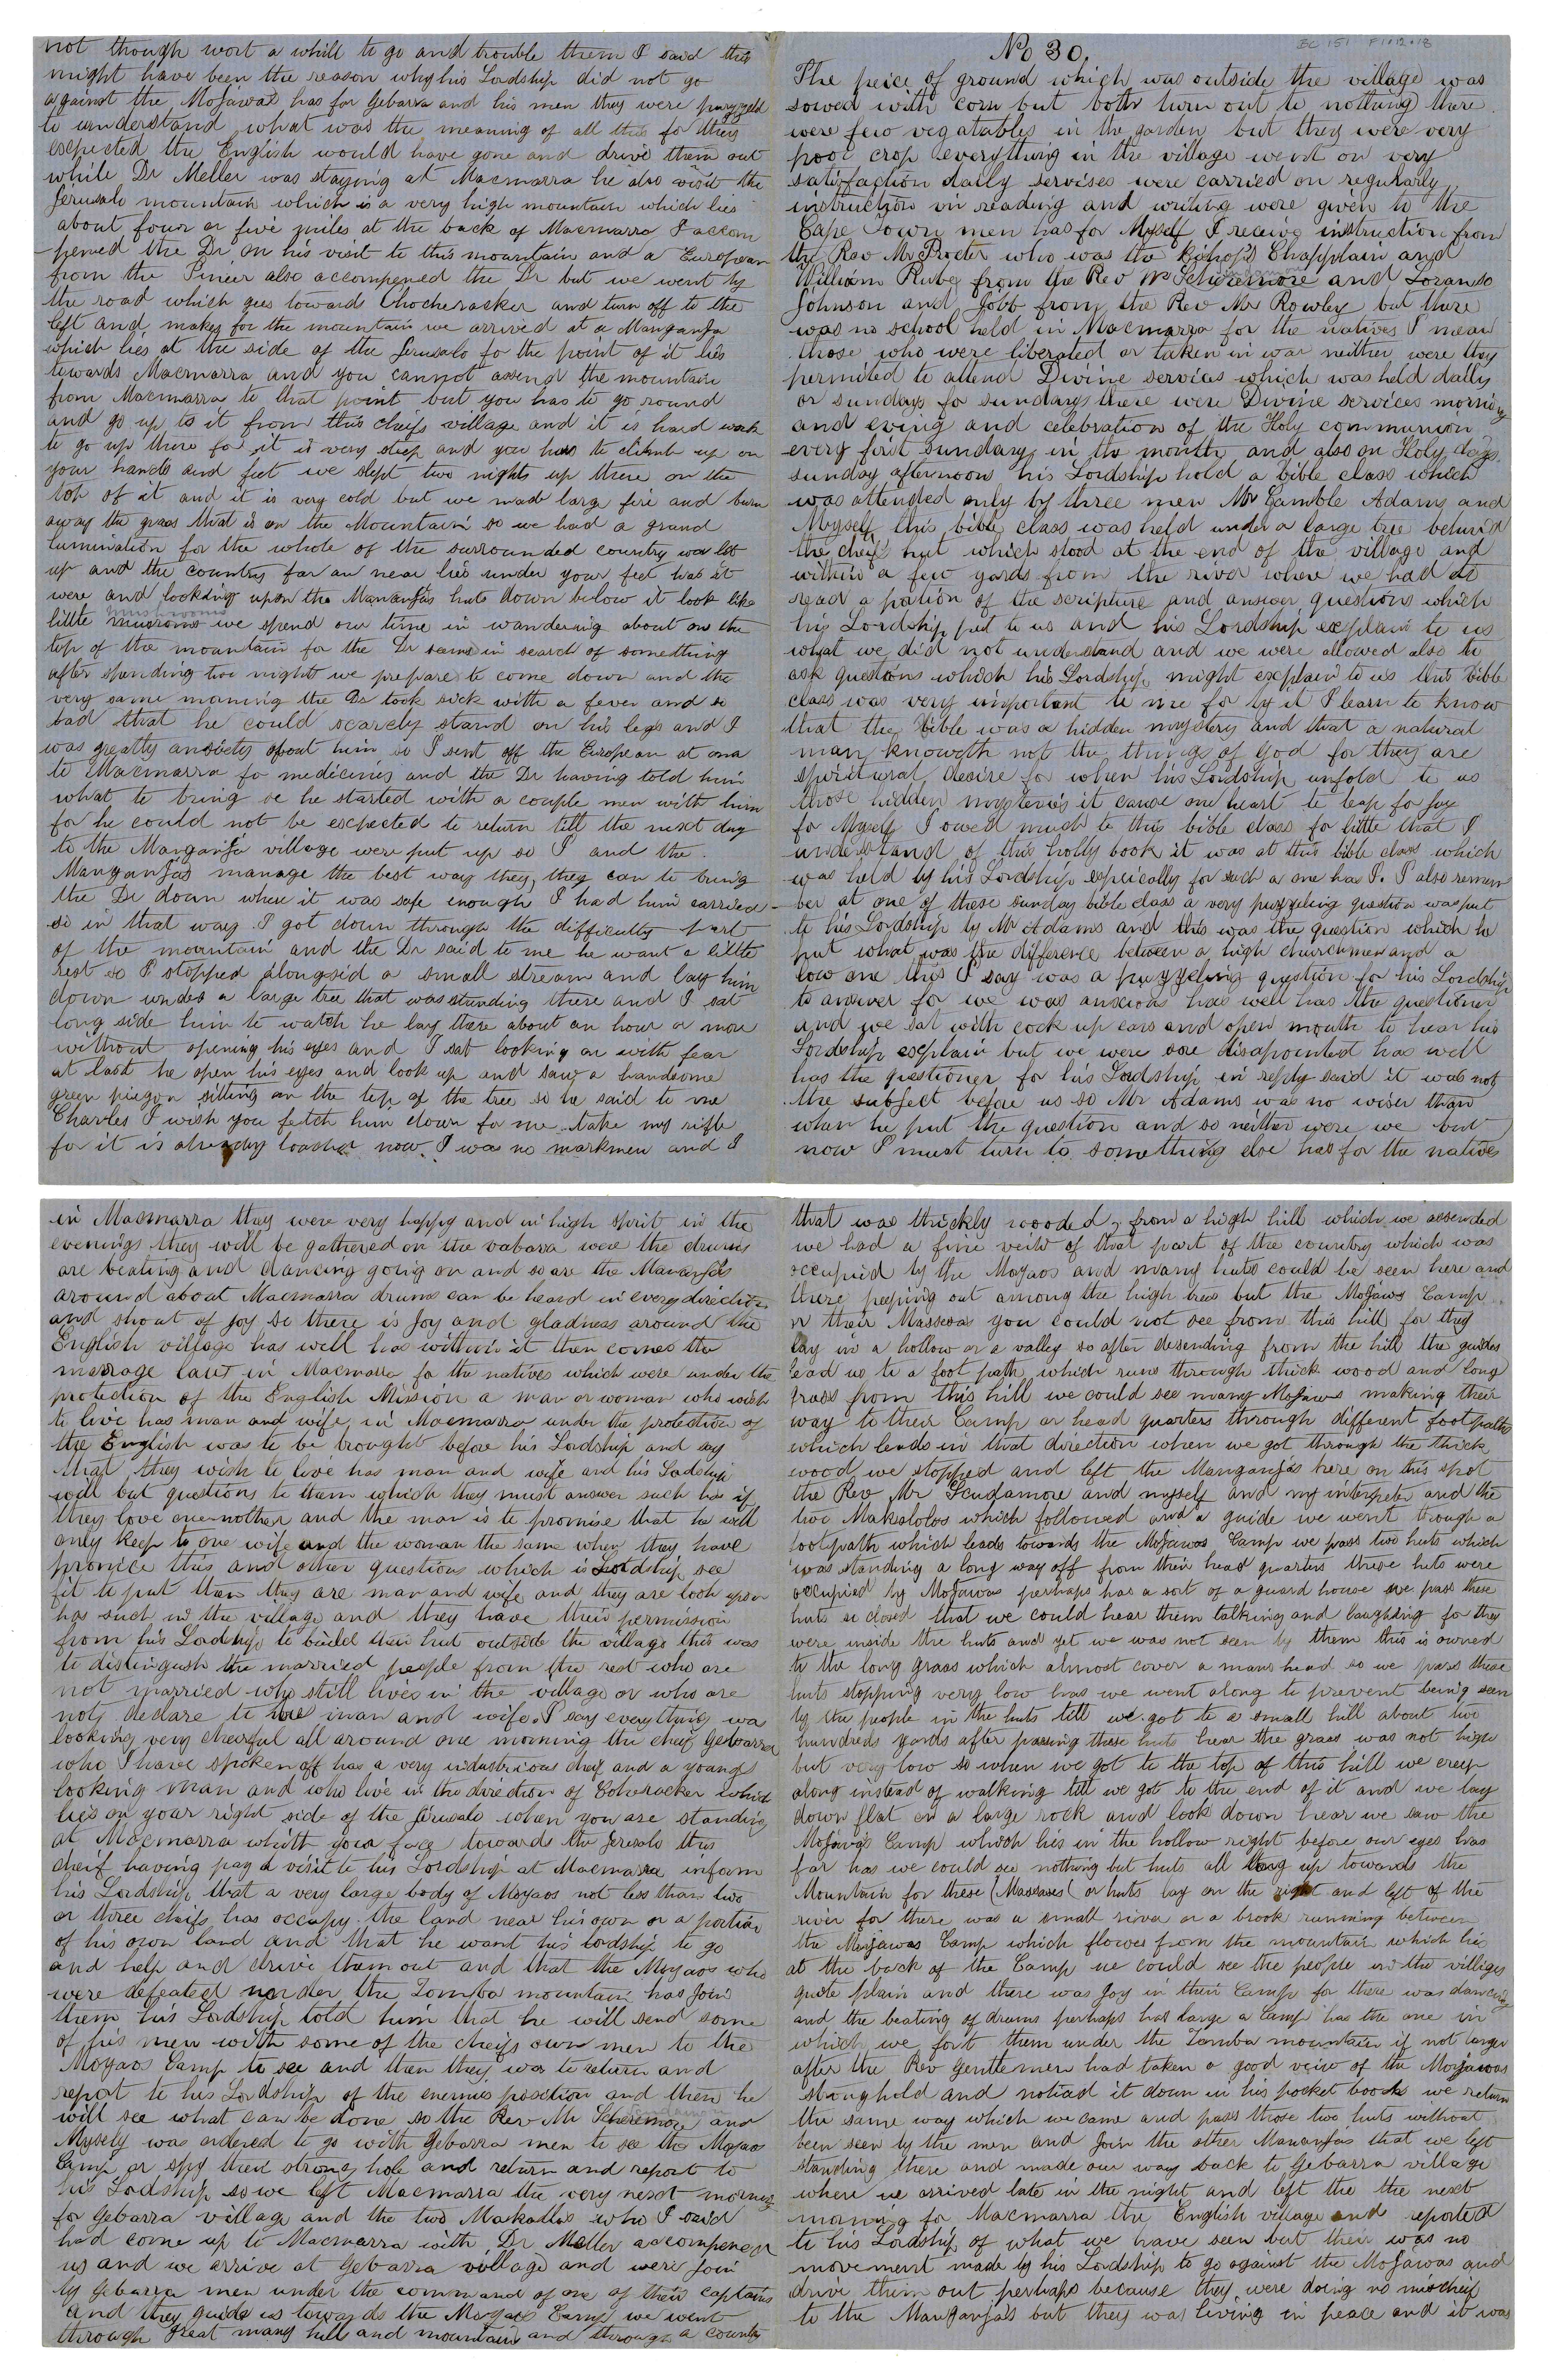 not though wort a whill to go and trouble them I said this
might have been the reason why his Lordship did not go
against the Mojawas has for Gebarra and his men they were puzzeld
to understand what was the meaning of all this for they
escpected the English would have gone and drive them out
while Dr Meller was staying at Macmarra he also visit the
Jerusalo mountain which is a very high mountain which lies
about four or five miles at the back of Macmarra I accom
-pened the Dr on his visit to this mountain and a European
from the Pineer also accompened the Dr but we went by
the road which goes towards Chocheracker and turn off to the
left and makes for the mountain we arrived at a Manganja
which lies at the side of the Jerusalo fo the point of it lies
towards Macmarra and you cannot assend the mountain
from Macmarra to that point but you has to go round
and go up to it from this cheifs village and it is hard work
to go up there for it is very steep and you has to climb up on
your hands and feet we slept two nights up there on the
top of it and it is very cold but we made large fire and burn
away the grass that is on the Mountain so we had a grand
lumination for the whole of the surrounded country was lit
up and the country far an near lies under your feet has it
were and looking upon the Mananjas huts down below it look like
little musroms we spend our time in wandering about on the
top of the mountain for the Dr seems in search of something
after spending two night we prepare to come down and the
very same morning the Dr took sick with a fever and so
bad that he could scarcely stand on his legs and I
was greatly ancsiety about him so I sent off the European at once
to Macmarra fo medicines and the Dr having told him
what to bring so he started with a couple men with him
for he could not be escpected to return till the next day
to the Manganja village were put up so I and the
Manganjas manage the best way they, they can to bring
the Dr down when it was safe inough I had him carried
so in that way I got down through the difficulty part
of the mountain and the Dr said to me he want a little
rest so I stopped alongsid a small stream and lay him
down under a large tree that was standing there and I sat
long side him to watch he lay there about an hour or more
without opening his eyes and I sat looking on with fear
at last he open his eyes and look up and saw a handsome
green piegon sitting on the top of the tree so he said to me
Charles I wish you fetch him down for me take my rifle
fo it is already loaded now I was no markmen and I
No 30.
BC 151 F1.12.18
The peice of ground which was outside the village was
sowed with corn but both turn out to nothing there
were few vegatables in the garden but they were very
poor crop everything in the village went on very
satisfaction daily servises were carried on regularly
instruction in reading and writing were given to the
Cape Town men has for Myself I receive instruction from
the Rev Mr Procter who was the Bishop's Chapplain and
William Ruby from the Rev Mr Scheremore and Loranso
Johnson and Jobb from the Rev Mr Rowley but there
was no school held in Macmarra for the natives I mean
those who were liberated or taken in war neither were they
permited to attend Divine services which was held daily
or sundays fo sundays there were Divine services morning
and eving and celebration of the Holy communion
every first sunday in the month and also on Holy days.
sunday afternoons his Lordship hold a bible class which
was attended only by three men Mr Gamble Adams and
Myself this bible class was held under a large tree behind
the cheif hut which stood at the end of the village and
within a few yards from the river where we had to
read a potion of the scripture and answer questions which
his Lordship put to us and his Lordship excplain to us
what we did not understand and we were allowed also to
ask questions which his Lordship might escplain to us this bible
class was very important to me for by it I learn to know
that the bible was a hidden mystery and that a natural
man knoweth not the things of God for they are
spiritural desire for when his Lordship unfold to us
those hidden mysteries it cause one heart to leap for joy
fo Myself I owed much to this bible class for little that I
understand of this holly book it was at this bible class which
was held by his Lordship espically for such a one has I. I also remem
ber at one of these sunday bible class a very puzzeling question was put
to his Lordship by Mr Adams and this was the question which he
put what was the difference between a high churchmen and a
low one this I say was a puzzeling question for his Lordship
to answer for we was anxious has well has the questioner
and we sat with cock up ears and open mouth to hear his
Lordship escplain but we were sore disapointed has well
has the questioner for his Lordship in reply said it was not
the subject before us so Mr Adams was no wiser than
when he put the question and so neither were we but
now I must turn to something else has for the natives
in Macmarra they were very happy and in high spirit in the
evenings they will be gathered on the vabara were the drums
are beating and dancing going on and so are the Mananjas
around about Macmarra drums can be heard in every direction
and shout of joy so there is Joy and gladness around the
English village has well has within it then comes the
marrage laws in Macmarra fo the natives which were under the
protection of the English Mission a man or woman who wish
to live has man and wife in Macmarra under the protection of
the English was to be brought before his Lordship and say
that they wish to live has man and wife and his Lordship
will but questions to them which they must answer such has if
they love onenother and the man is to promise that he will
only keep to one wife and the woman the same when they have
promice this and other questions which is Lordship see
fit to put then they are man and wife and they are look upon
has such in the village and they have their permission
from his Lordship to build their hut outside the village this was
to distingush the married people from the rest who are
not married who still lives in the village or who are
not declare to be man and wife. I say everything wa
looking very cheerful all around one morning the cheif Gebarra
who I have spoken off has a very industrious cheif and a young
looking man and who live in the direction of Cohoracker which
lies on your right side of the Jerusalo when you are standing
at Macmarra whith your face towards the Jerusalo this
cheif having pay a visit to his Lordship at Macmarra inform
his Lordship that a very large body of Moyaos not less than two
or three cheifs has occupy the land near his own or a portion
of his own land and that he want his lordship to go
and help and drive them out and that the Moyaos who
were defeated under the Zomba mountain has join
them his Lordship told him that he will send some
of his men with some of the cheifs own men to the
Moyaos Camp to see and then they wa to return and
report to his Lordship of the enemies position and then he
will see what can be done so the Rev Mr Scheremore and
Myself was ordered to go with Gebarra men to see the Moyaos
Camp or spy their strong hole and return and report to
his Lordship so we left Macmarra the very nesct morning
for Gebarra village and the two Makallas who I said
had come up to Macmarra with Dr Meller accompened
us and we arrive at Gebarra village and were Join
by Gebarra men under the command of one of their captains
and they guide us towards the Moyaos Camp we went
through great many hill and mountain and through a country
that was thickly wooded, from a high hill which we assended
we had a fine veiw of that part of the country which was
occupied by the Moyaos and many huts could be seen here and
there peeping out among the high trees but the Mojaws Camp
or their Massesas you could not see from this hill for they
lay in a hollow or a valley so after desending from the hill the guides
lead us to a foot path which runs through thick wood and long
grass from this hill we could see many Mojaws making their
way to their Camp or head quarters through different footpaths
which leads in that direction when we got through the thick
wood we stopped and left the Manganjas here on this spot
the Rev Mr Scudamore and myself and my interpeter and the
two Makalolos which followed and a guide we went through a
footpath which leads towards the Mojawos Camp we pass two huts which
was standing a long way off from their head quarters these huts were
occupied by Mojawas perhaps has a sort of a guard house we pass these
huts so closed that we could hear them talking and laughding for they
were inside the huts and yet we was not seen by them this is owned
to the long grass which almost cover a mans head so we pass these
huts stopping very low has we went along to prevent being seen
by the people in the huts till we got to a small hill about two
hundreds yards after passing these huts hear the grass was not high
but very low so when we got to the top of this hill we creep
along instead of walking till we got to the end of it and we lay
down flat on a large rock and look down hear we saw the
Mojawas Camp which lies in the hollow right before our eyes has
far has we could see nothing but huts all long up towards the
Mountain for these (Massasas) or huts lay on the right and left of the
river for there was a small river or a brook running between
the Moyjawas Camp which flowes from the mountain which lies
at the back of the Camp we could see the people in the villiges
quite plain and there was Joy in their Camp for there was dancing
and the beating of drums perhaps has large a Camp has the one in
which we fort them under the Zomba mountain if not larger
after the Rev gentlemen had taken a good veiw of the Mojawas
stronghold and noticed it down in his pocket books we return
the same way which we came and pass those two huts without
been seen by the men and Join the other Mananjas that we left
standing there and made our way back to Gebarra village
where we arrived late in the night and left the the nesct
morning for Macmarra the English village and reported
to his Lordship of what we have seen but their was no
movement made by his Lordship to go against the Mojawas and
drive them out perhaps because they were doing no mischeif
to the Manganjas but they was living in peace and it was